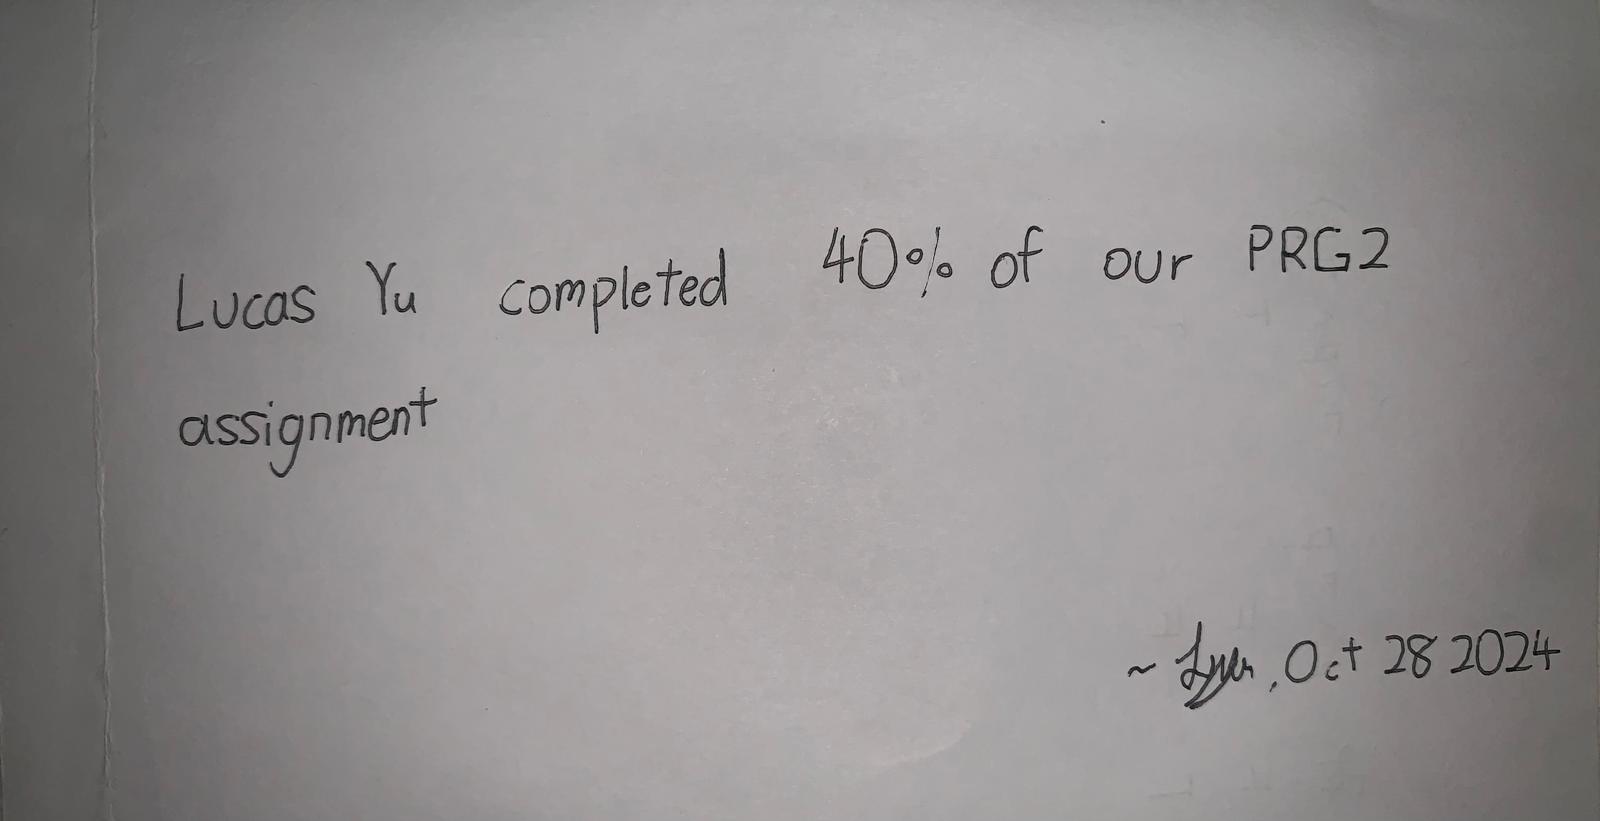 Lucas Yu completed 40% of our PRG2
assignment
~ , Oct 28 2024